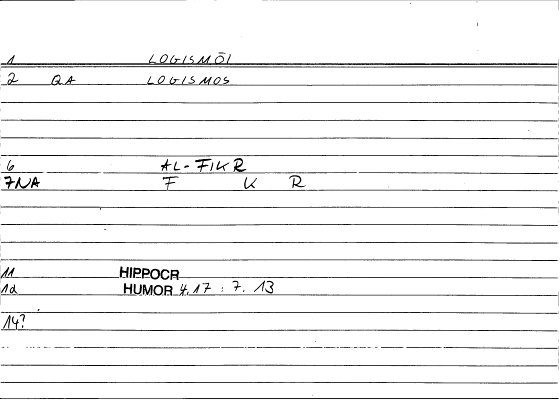 1 LOGISMŌI
2 QA LOGISMOS
6 AL-FIKR
7NA F K R
11 HIPPOCR
12 HUMOR 4.17 : 7. 13
14?